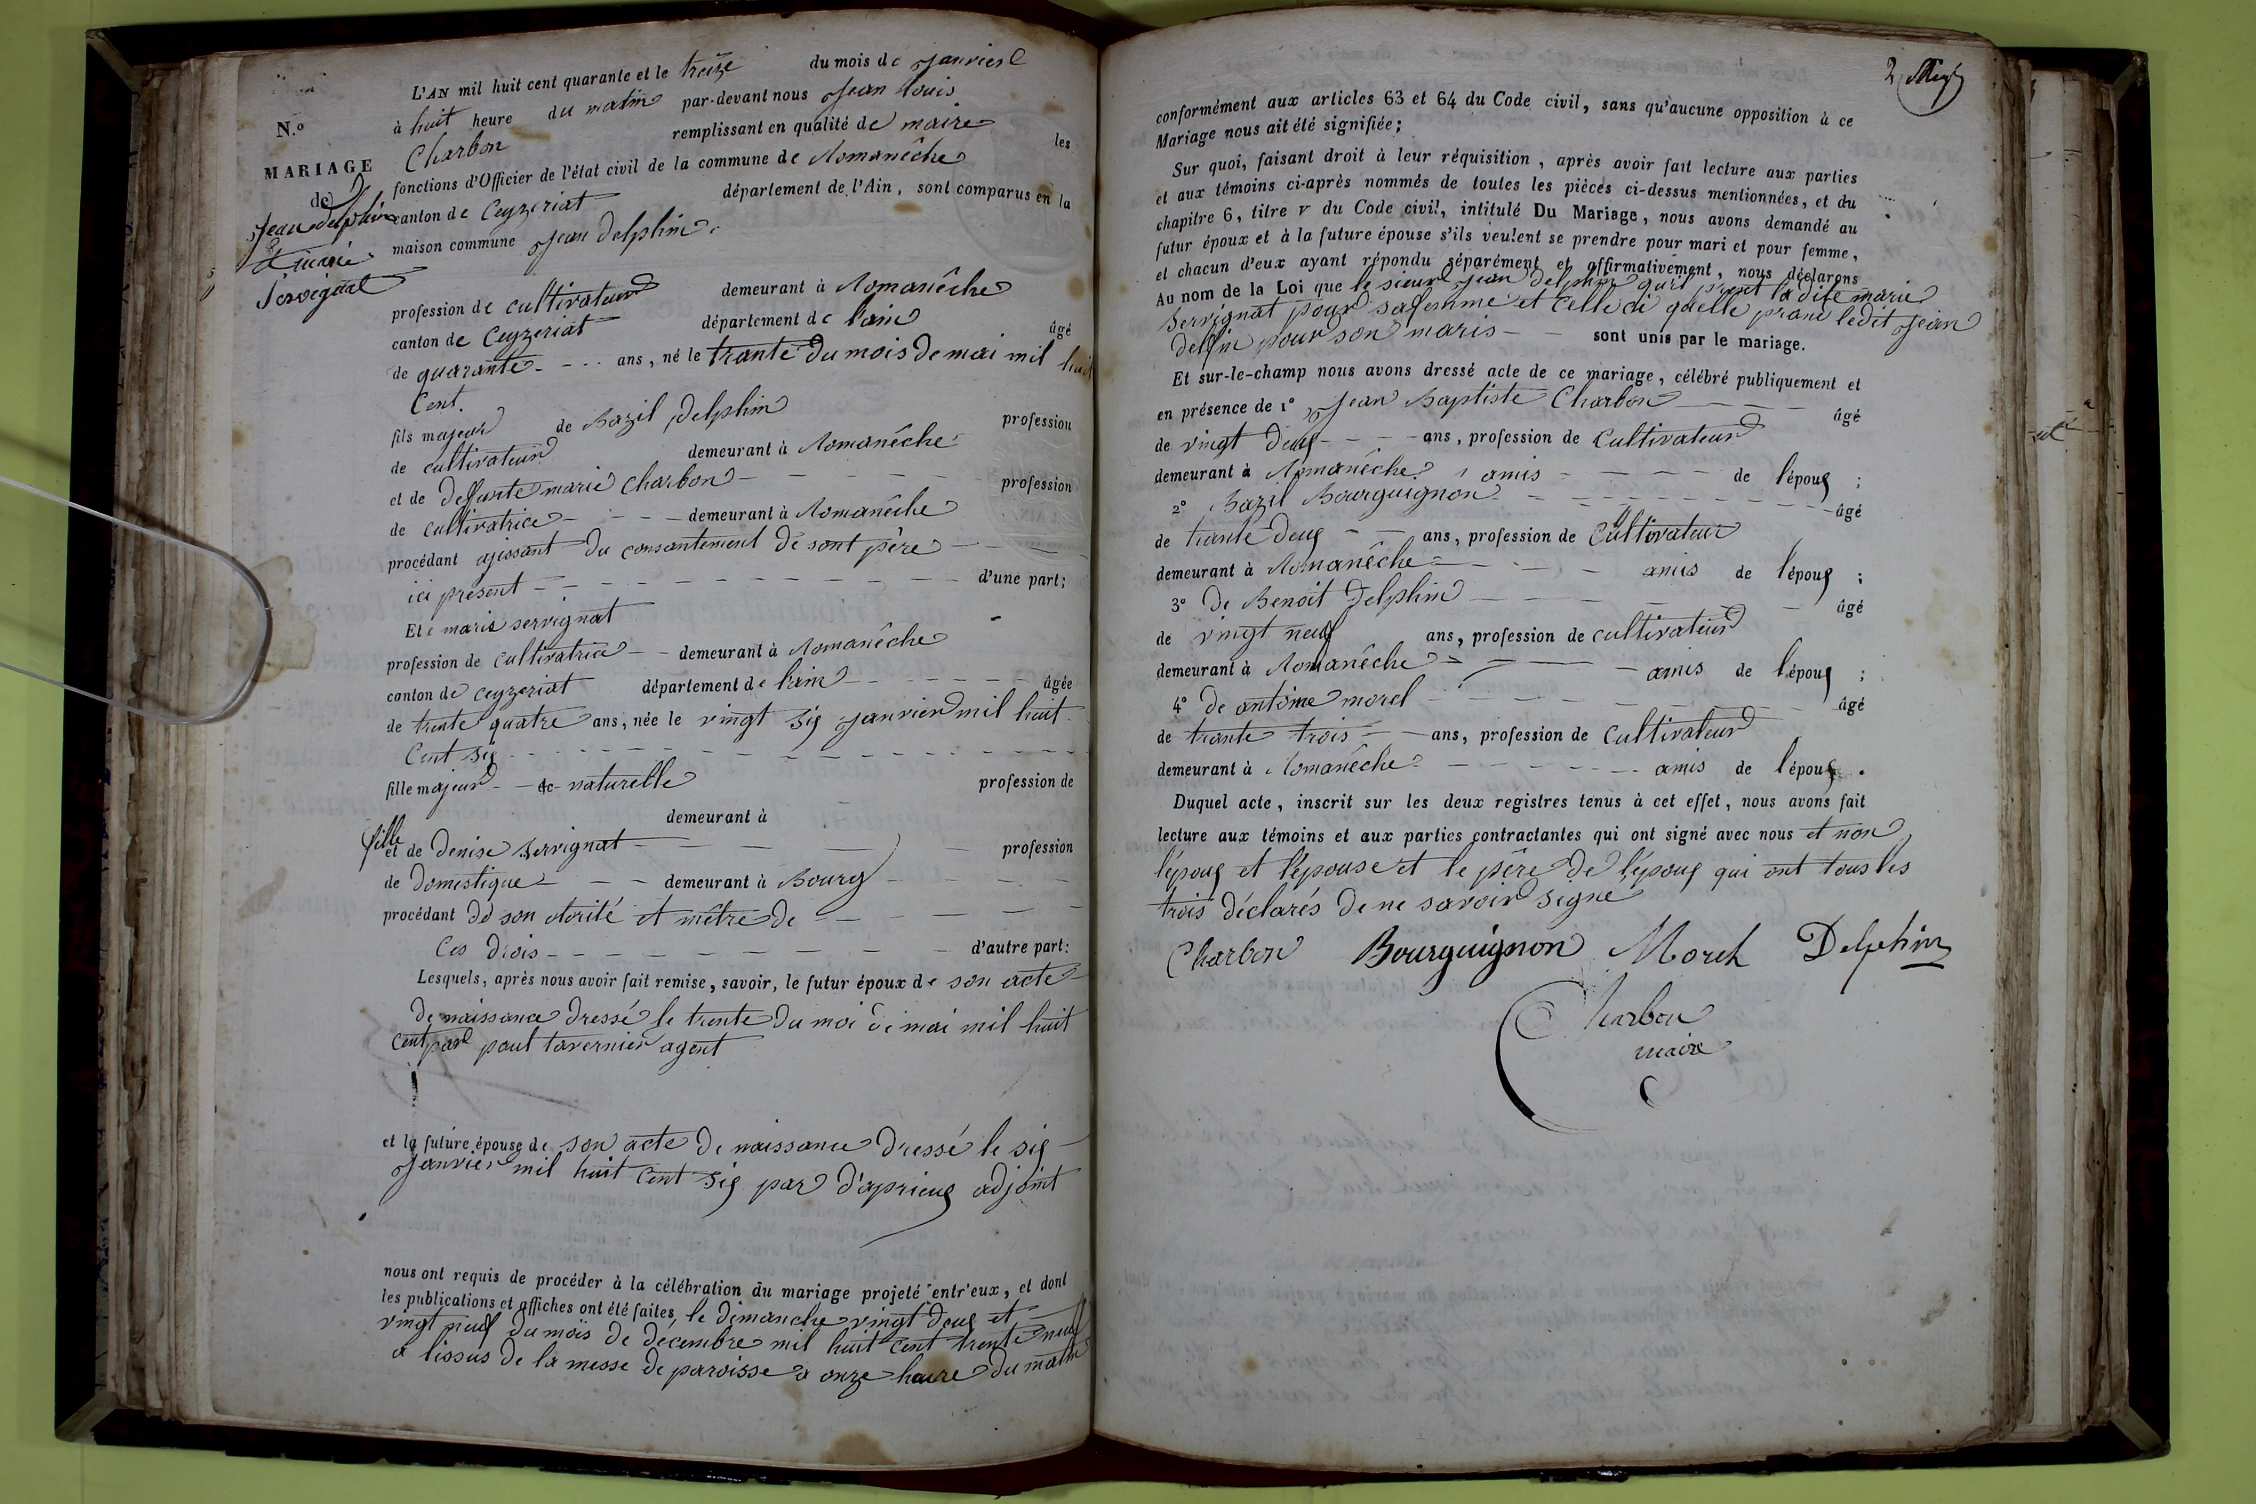 N.º
MARIAGE
de
Jean delphin
& marie
Servignat
L'AN mil huit cent quarante et le treize du mois de Janvier
à huit heure du matin par-devant nous Jean Louis
Charbon remplissant en qualité de maire les
fonctions d'Officier de l'état civil de la commune de Romanêche
canton de Ceyzeriat département de l'Ain, sont comparus en la
maison commune Jean delphin
profession de cultivateur demeurant à Romanêche
canton de Ceyzeriat département de l'ain âgé
de quarante ans, né le trante du mois de mai mil huit
Cent.
fils majeur de Bazil delphin profession
de cultivateur demeurant à Romanêche
et de deffunte marie Charbon profession
de cultivatrice demeurant à Romanêche
procédant ajissant du consantement de sont père
ici présent d'une part;
Et marie servignat
profession de cultivatrice demeurant à Romanêche
canton de ceyzeriat département de l'ain âgée
de trente quatre ans, née le vingt six janvier mil huit
Cent six
fille majeur de naturelle profession de
demeurant à
fille
et de denise Servignat profession
de domestique demeurant à Bourg
procédant de son otorité et mêtre de
Ces drois d'autre part:
Lesquels, après nous avoir fait remise, savoir, le futur époux de son acte
de naissance dressé le trente du moi de mai mil huit
cent par paul tavernier agent
et la future épouse de son acte de naissance dressé le six
Janvier mil huit Cent six par d'aprieux adjoint
nous ont requis de procéder à la célébration du mariage projeté entr'eux, et dont
les publications et affiches ont été faites, le dimanche vingt deux et
vingt neuf du mois de decembre mil huit cent trente neuf
a lissus de la messe de paroisse a onze heure du matin
2
conformément aux articles 63 et 64 du Code civil, sans qu'aucune opposition à ce
Mariage nous ait été signifiée;
Sur quoi, faisant droit à leur réquisition, après avoir fait lecture aux parties
et aux témoins ci-après nommés de toutes les pièces ci-dessus mentionnées, et du
chapitre 6, titre V du Code civil, intitulé Du Mariage, nous avons demandé au
futur époux et à la future épouse s'ils veulent se prendre pour mari et pour femme,
et chacun d'eux ayant répondu séparément et affirmativement, nous déclarons
Au nom de la Loi que le sieur Jean delphin quil prent la dite marie
Servignat pour sa femme et Celle ci quelle prand ledit Jean
delfin pour son maris sont unis par le mariage.
Et sur-le-champ nous avons dressé acte de ce mariage, célébré publiquement et
en présence de 1º Jean Baptiste Charbon âgé
de vingt deux ans, profession de Cultivateur
demeurant à Romanêche amis de l'époux ;
2º Bazil Bourguignon âgé
de trante deux ans, profession de Cultivateur
demeurant à Romanêche amis de l'époux ;
3º de Benoit delphin âgé
de vingt neuf ans, profession de cultivateur
demeurant à Romanêche amis de l'époux ;
4º de antoine morel âgé
de trante trois ans, profession de Cultivateur
demeurant à Romanêche amis de l'époux .
Duquel acte, inscrit sur les deux registres tenus à cet effet, nous avons fait
lecture aux témoins et aux parties contractantes qui ont signé avec nous et non
l'époux et l'épouse et le père de l'époux qui ont tous les
trois déclarés de ne savoir signé
Charbon Bourguignon Morel Delphin
Charbon
maire